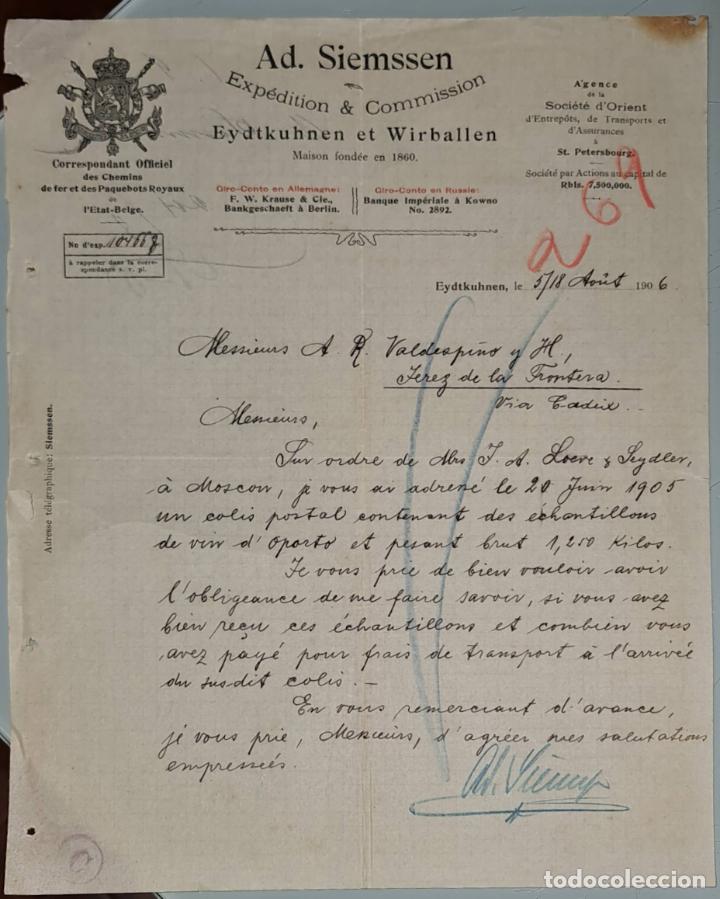 Ad. Siemssen
Expédition & Commission
Eydtkuhnen et Wirballen
Maison fondée en 1860.
Correspondant Officiel
des Chemins
de fer et des Paquebots Royaux
de
l'Etat-Belge.
Agence
de la
Société d'Orient
d'Entrepôts, de Transports et
d'Assurances
à
St. Petersbourg.
Société par Actions au capital de
Rbls. 7,500,000.
Giro-Conto en Allemagne:
F. W. Krause & Cie.,
Bankgeschaeft à Berlin.
Giro-Conto en Russie:
Banque Impériale à Kowno
No. 2892.
No d'exp.
à rappeler dans la corre-
spondance s. v. pl.
269
Eydtkuhnen, le 5/18 Août 1906
Adresse télégraphique: Siemssen.
Messieurs A. R. Valdespino y H.,
Jerez de la Frontera.
Via Cadix.
Messieurs,
Sur ordre de Mrs J. A. Loeve & Seydler,
à Moscou, je vous ai adressé le 20 Juin 1905
un colis postal contenant des échantillons
de vin d'Oporto et pesant brut 1,250 Kilos.
Je vous prie de bien vouloir avoir
l'obligeance de me faire savoir, si vous avez
bien reçu ces échantillons et combien vous
avez payé pour frais de transport à l'arrivée
du susdit colis. —
En vous remerciant d'avance,
je vous prie, Messieurs, d'agréer mes salutations
empressées.
Ad. Siemssen
todocoleccion.net